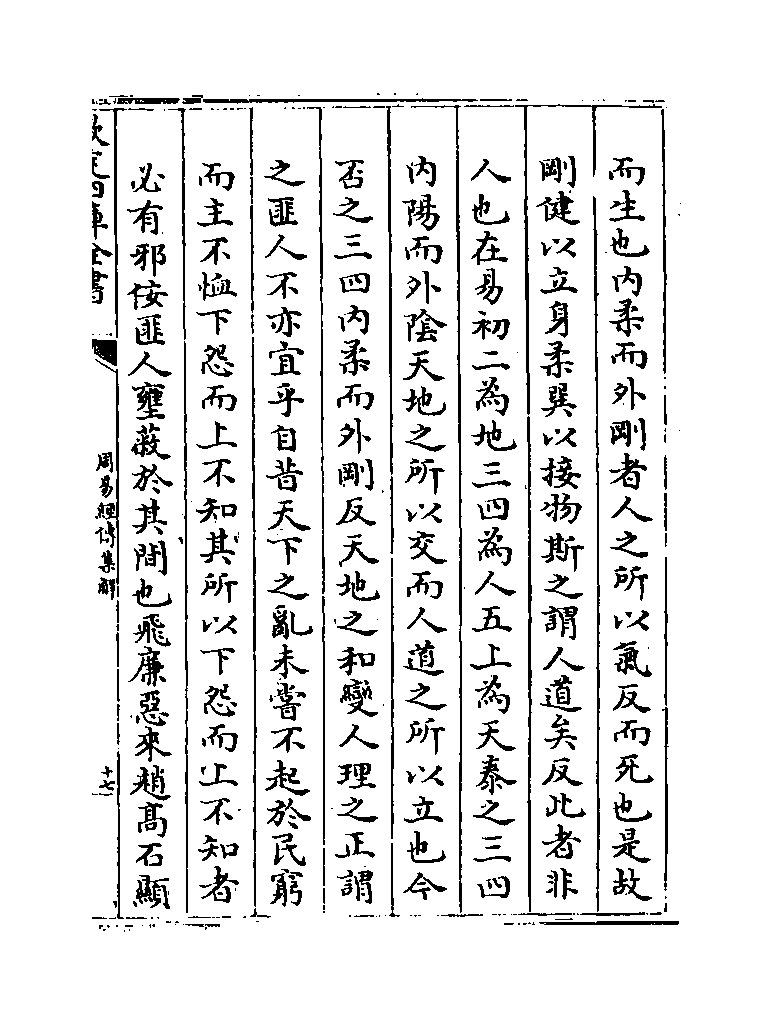 而生也内柔而外剛者人之所以氣反而死也是故
剛健以立身柔巽以接物斯之謂人道矣反此者非
人也在易初二為地三四為人五上為天泰之三四
内陽而外陰天地之所以交而人道之所以立也今
否之三四内柔而外剛反天地之和變人理之正謂
之匪人不亦宜乎自昔天下之亂未嘗不起於民窮
而主不恤下怨而上不知其所以下怨而上不知者
必有邪佞匪人壅蔽於其間也飛廉惡來趙髙石顯
欽定四庫全書
周易經傳集解
十七